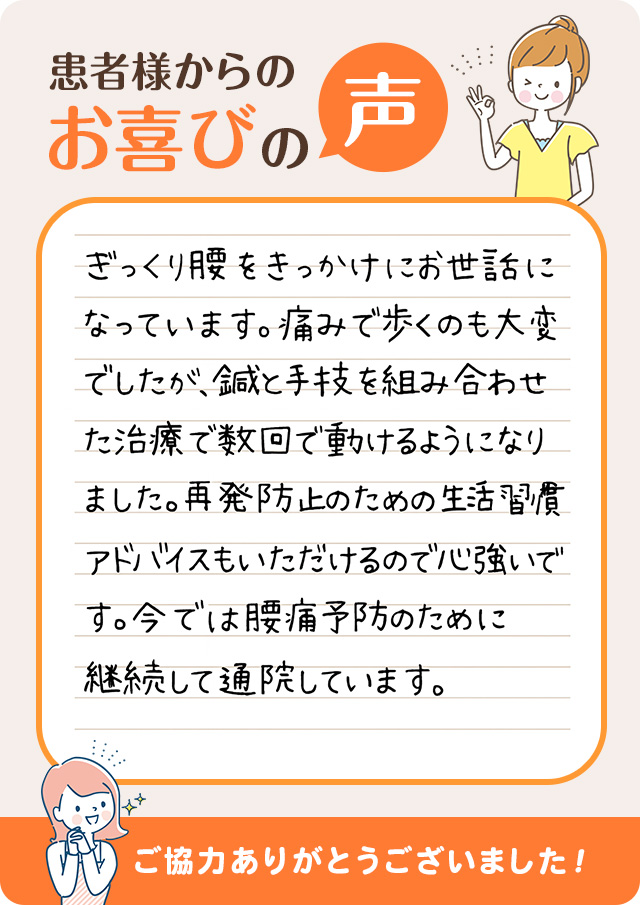 患者様からの
お喜びの声
ぎっくり腰をきっかけにお世話に
なっています。痛みで歩くのも大変
でしたが、鍼と手技を組み合わせ
た治療で数回で動けるようになり
ました。再発防止のための生活習慣
アドバイスもいただけるので心強いで
す。今では腰痛予防のために
継続して通院しています。
ご協力ありがとうございました！